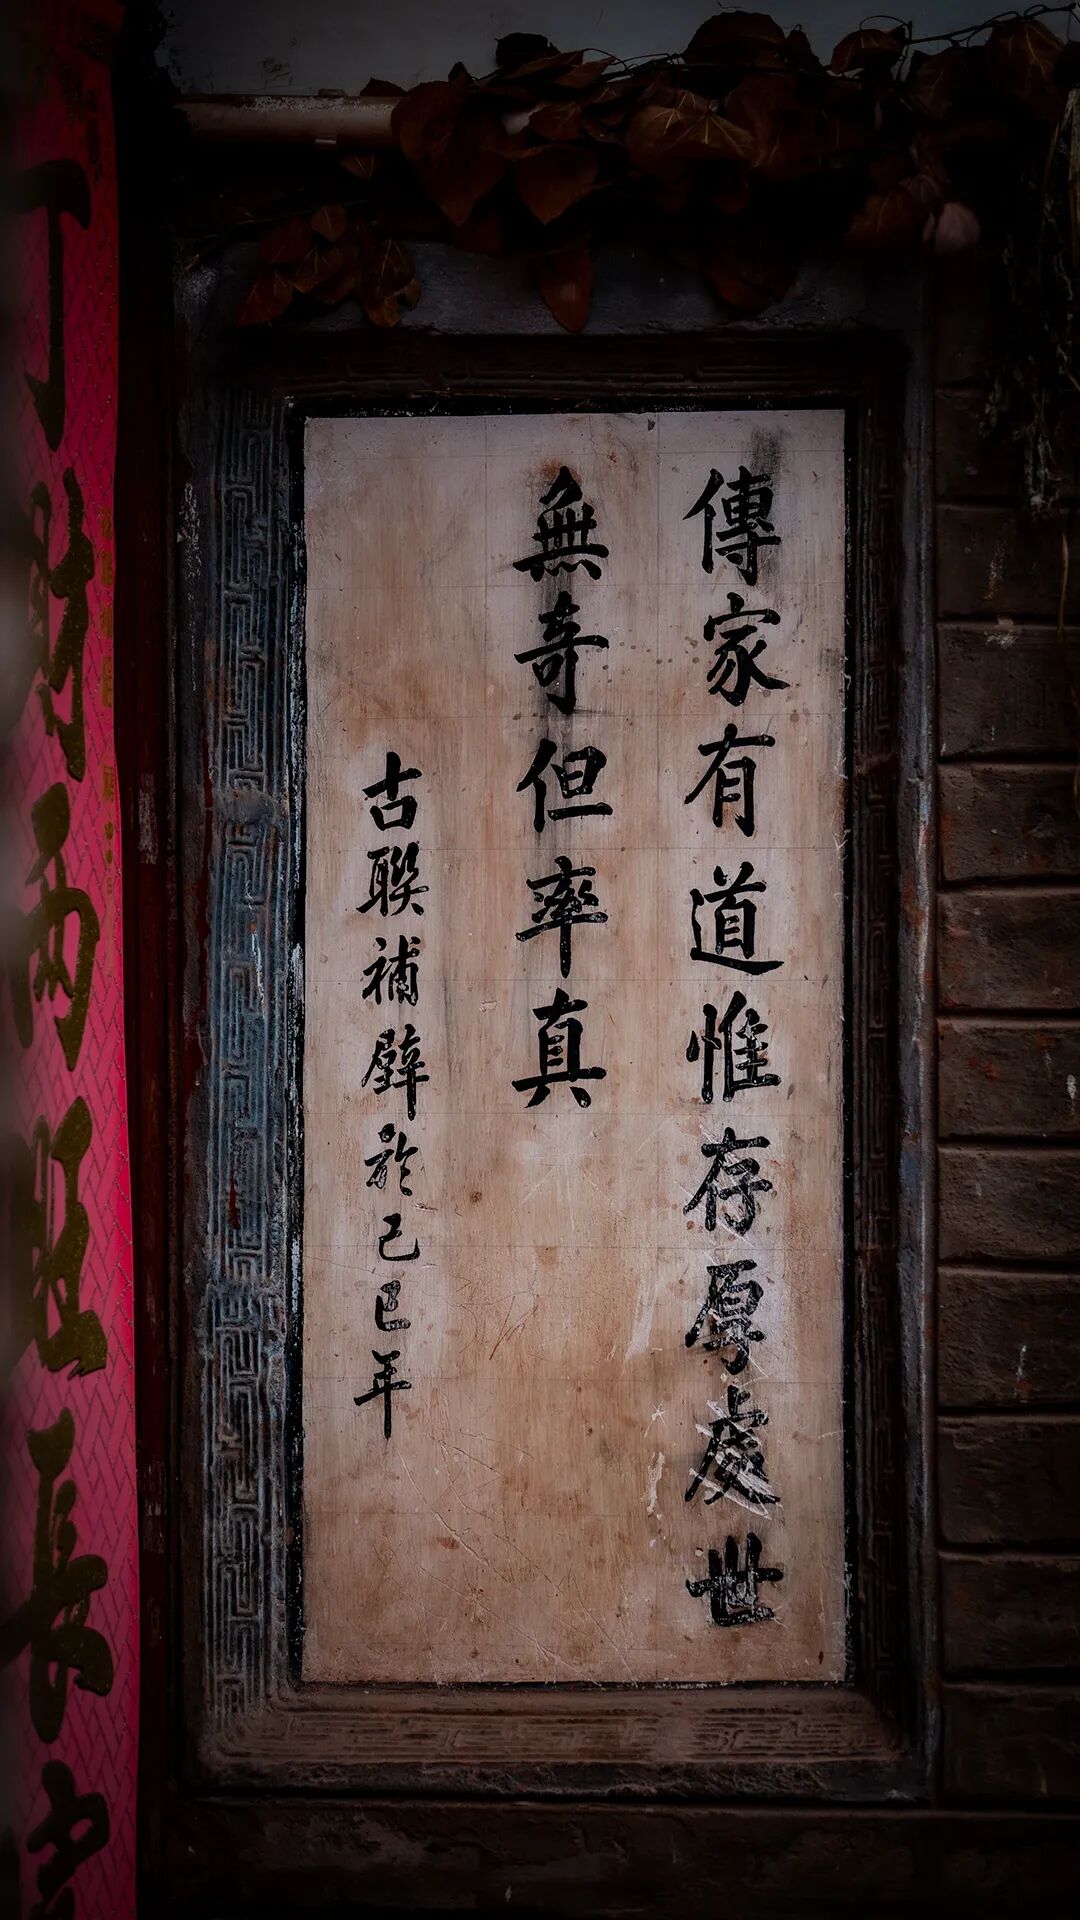 傳家有道惟存厚處世
無奇但率真
古聯補壁於己巳年
丁財兩旺長